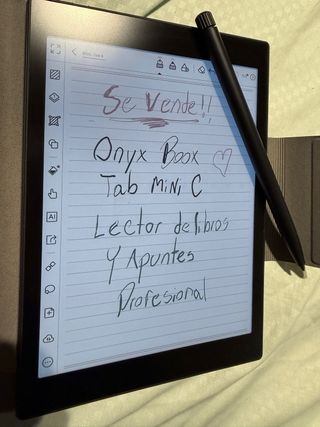 Se Vende!!
Onyx Boox
Tab Mini C
Lector de libros
Y Apuntes
Profesional
AI